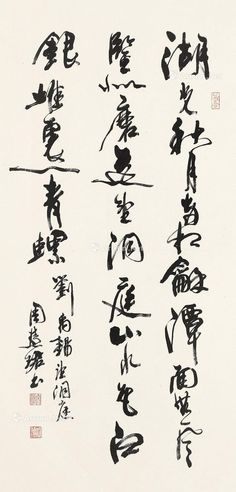 湖光秋月兩相龢潭面無風
磨遥望洞庭山水色白
銀裏一青螺
劉禹錫望洞庭
周慧珺书